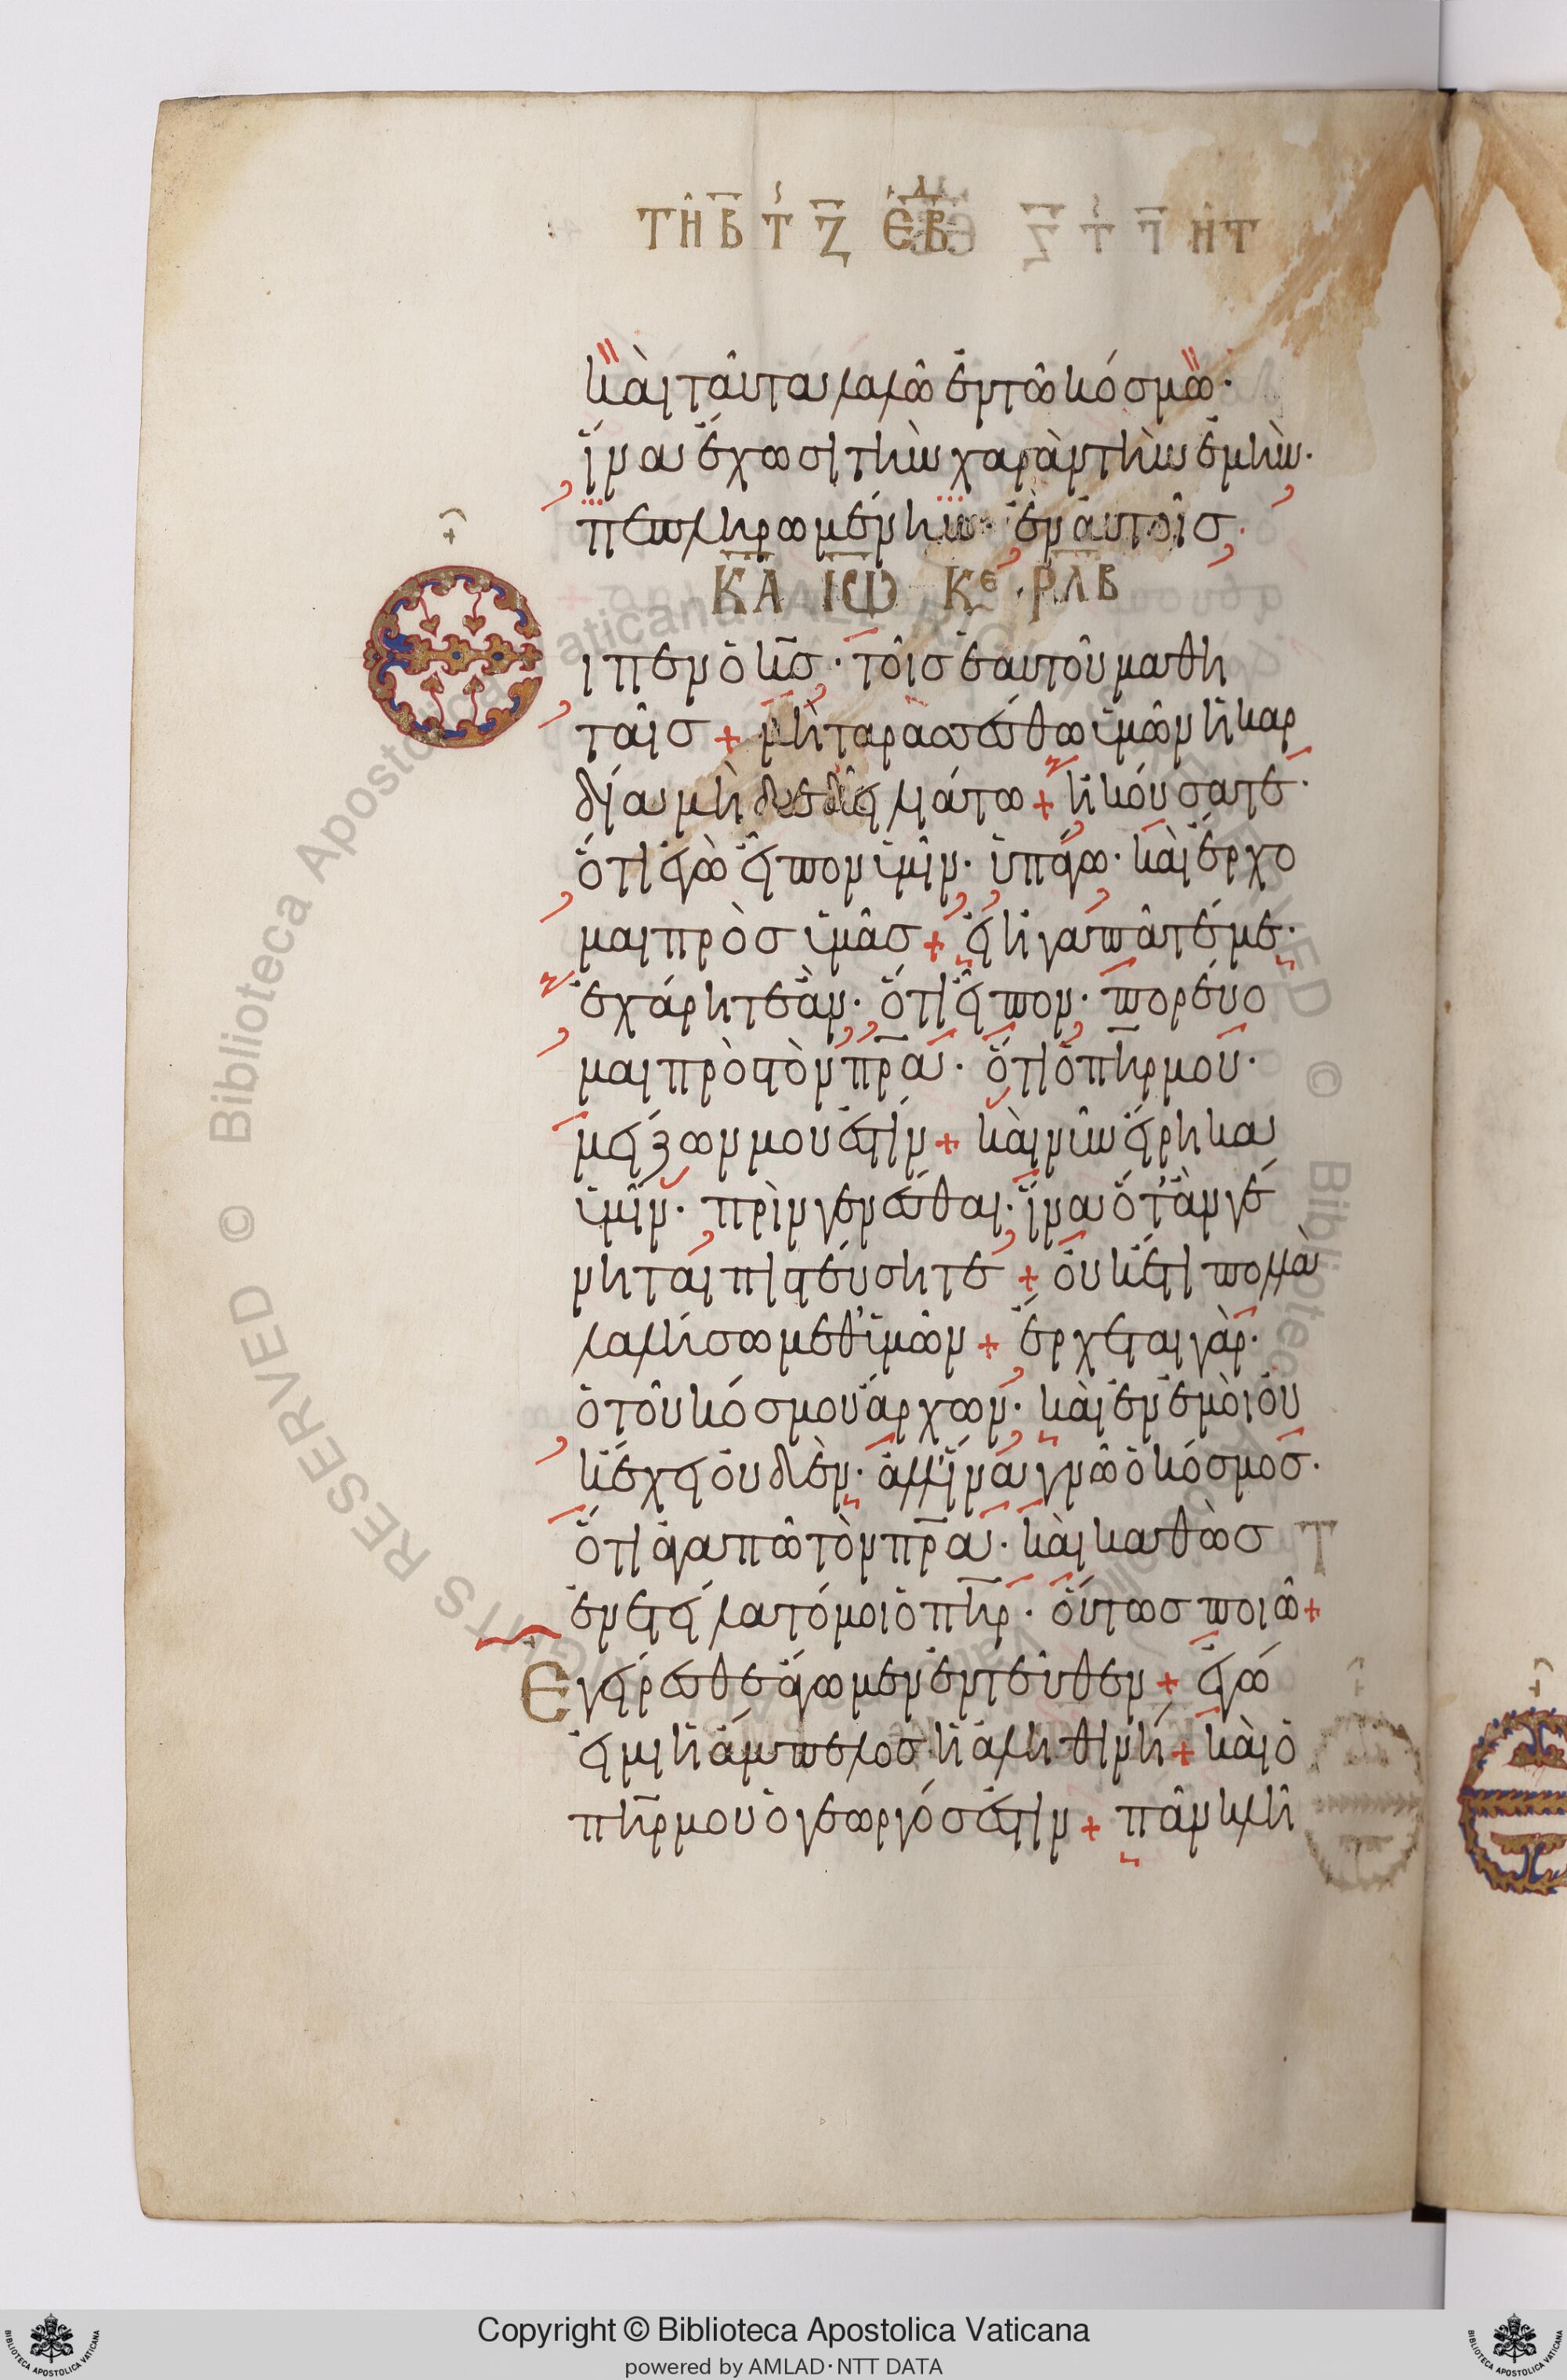 ΤΗ Β Τ Ζ ΕΒ
καὶ ταῦτα λαλῶ ἐν τῶ κόσμω·
ἵνα ἔχωσι τὴν χαρὰν τὴν ἐμὴν·
πεπληρωμένην· ἐν ἀυτοῖσ·
ΚΑ ΙΩ Κε · ΡΛΒ
ιπεν ὁ κσ · τοῖσ ἑαυτοῦ μαθη
ταῖσ + μὴ ταρασσέσθω ὑμῶν ἡ καρ
δία μὴ δὲ δειλιάτω + ἠκόυσατε·
ὅτι ἐγὼ εἶπον ὑμῖν· ὑπάγω· καὶ ἔρχο
μαι πρὸσ ὑμᾶσ + εἰ ἠγαπᾶτέ με·
ἐχάρητε ἂν· ὅτι εἶπον· πορέυο
μαι πρὸς τὸν πρα· ὅτι ὁ πηρ μου·
μείζων μου ἐστὶν + καὶ νῦν ἔιρηκα
ὑμῖν· πρὶν γενέσθαι· ἵνα ὅτ' ἂν γέ
νηται πιστέυσητε + ὀυκέτι πολλὰ
λαλήσω μεθ' ὑμῶν + ἔρχεται γὰρ·
ὁ τοῦ κόσμου ἄρχων· καὶ ἐν ἐμοὶ ὀυ
κ ἔχει ὀυδὲν· ἀλλ' ἵνα γνῶ ὁ κόσμοσ·
ὅτι ἀγαπῶ τὸν πρα· καὶ καθὼσ
ἐνετείλατό μοι ὁ πηρ· ὅυτωσ ποιῶ +
Εγείρεσθε ἄγωμεν ἐντεῦθεν + ἐγώ
εἰμι ἡ ἄμπελοσ ἡ ἀληθινή + καὶ ὁ
πηρ μου ὁ γεωργόσ ἐστιν + πᾶν κλῆ
Copyright © Biblioteca Apostolica Vaticana
powered by AMLAD·NTT DATA